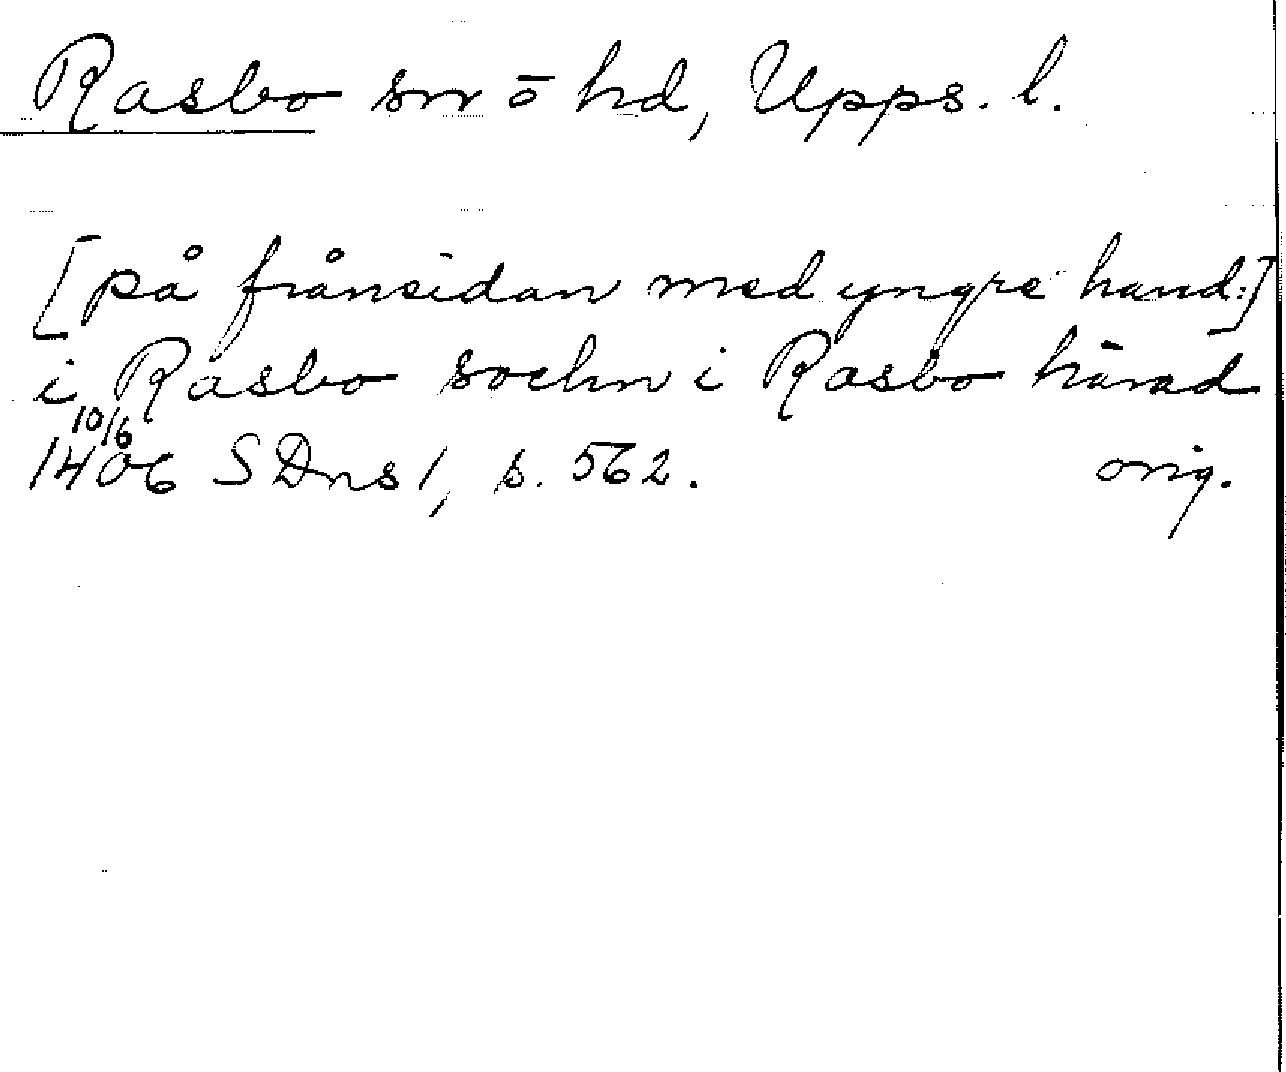 Rasbo sn ō hd, Upps. l.
[på frånsidan med yngre hand:]
i Råsbo sochn i Rasbo härad
10/6
1406 SDns 1, s. 562. orig.